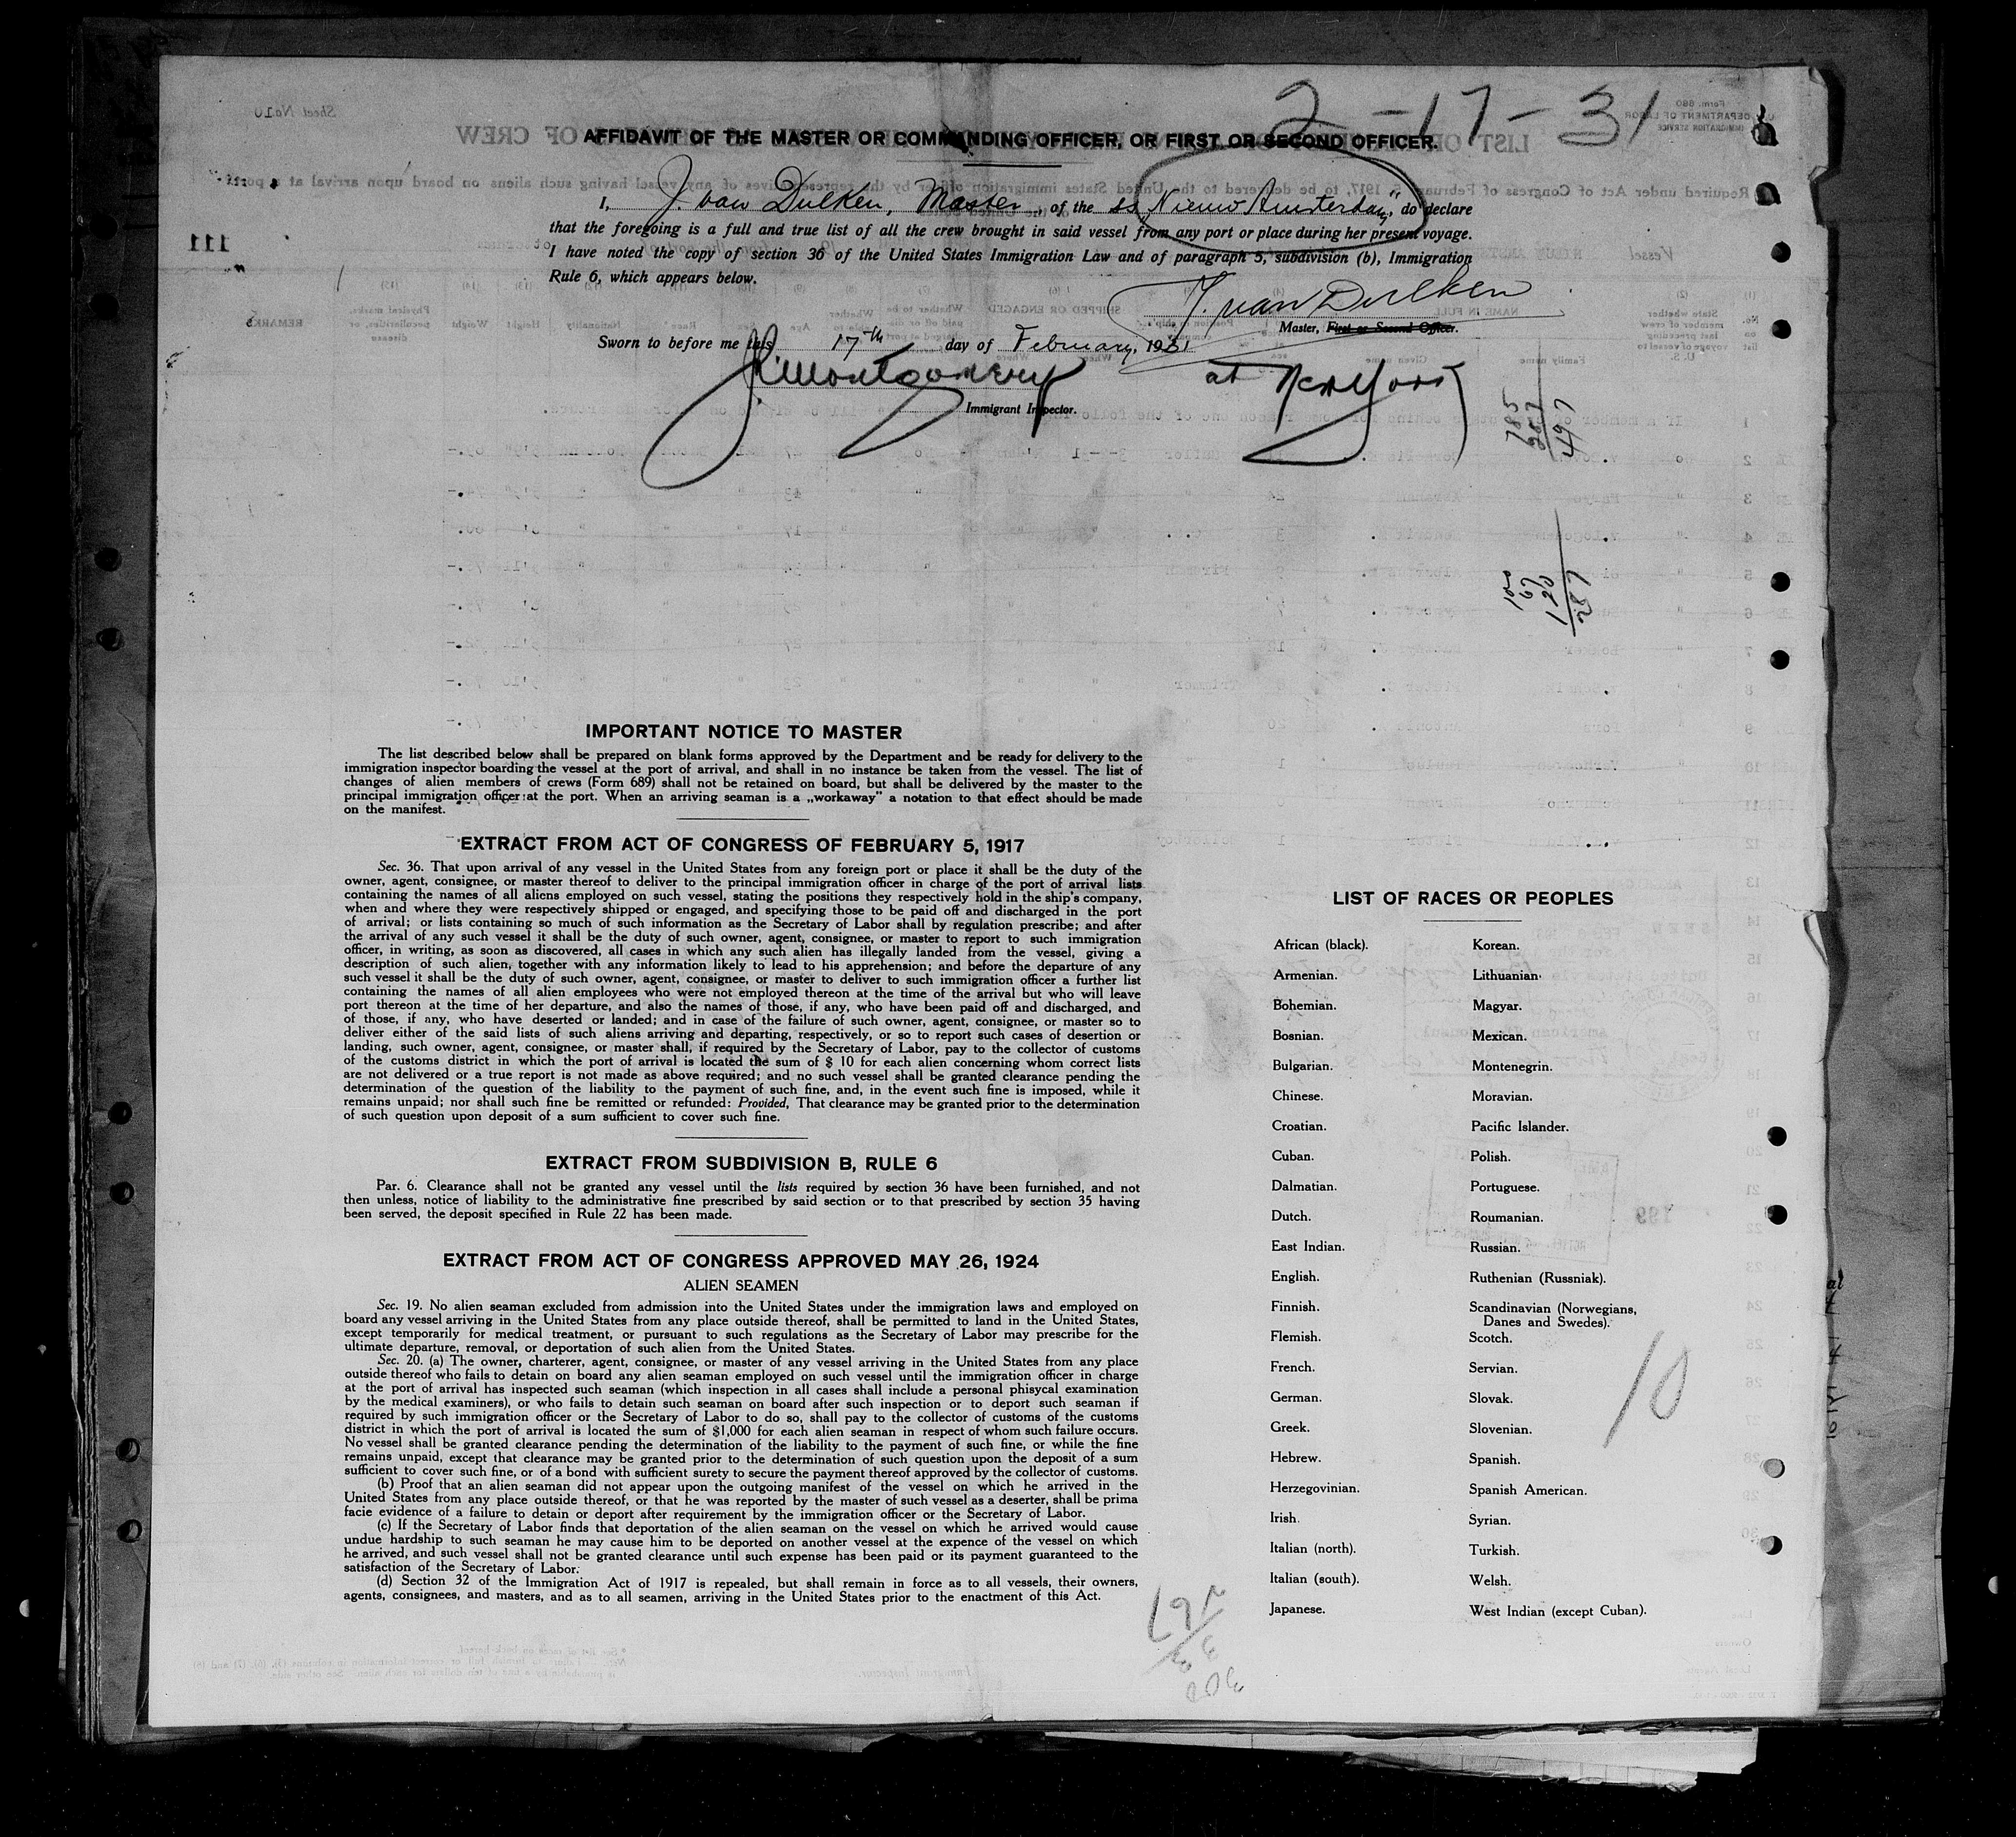 2-17-31
AFFIDAVIT OF THE MASTER OR COMMANDING OFFICER, OR FIRST OR SECOND OFFICER.
I, J. van Dulken, Master, of the ss "Nieuw Amsterdam", do declare
that the foregoing is a full and true list of all the crew brought in said vessel from any port or place during her present voyage.
I have noted the copy of section 36 of the United States Immigration Law and of paragraph 5, subdivision (b), Immigration
Rule 6, which appears below.
J. van Dulken
Master, First or Second Officer.
Sworn to before me this 17th day of February, 1931
Montgomery at New York
Immigrant Inspector.
785
287
497
100
67
120
287
IMPORTANT NOTICE TO MASTER
The list described below shall be prepared on blank forms approved by the Department and be ready for delivery to the
immigration inspector boarding the vessel at the port of arrival, and shall in no instance be taken from the vessel. The list of
changes of alien members of crews (Form 689) shall not be retained on board, but shall be delivered by the master to the
principal immigration officer at the port. When an arriving seaman is a „workaway” a notation to that effect should be made
on the manifest.
EXTRACT FROM ACT OF CONGRESS OF FEBRUARY 5, 1917
Sec. 36. That upon arrival of any vessel in the United States from any foreign port or place it shall be the duty of the
owner, agent, consignee, or master thereof to deliver to the principal immigration officer in charge of the port of arrival lists
containing the names of all aliens employed on such vessel, stating the positions they respectively hold in the ship's company,
when and where they were respectively shipped or engaged, and specifying those to be paid off and discharged in the port
of arrival; or lists containing so much of such information as the Secretary of Labor shall by regulation prescribe; and after
the arrival of any such vessel it shall be the duty of such owner, agent, consignee, or master to report to such immigration
officer, in writing, as soon as discovered, all cases in which any such alien has illegally landed from the vessel, giving a
description of such alien, together with any information likely to lead to his apprehension; and before the departure of any
such vessel it shall be the duty of such owner, agent, consignee, or master to deliver to such immigration officer a further list
containing the names of all alien employees who were not employed thereon at the time of the arrival but who will leave
port thereon at the time of her departure, and also the names of those, if any, who have been paid off and discharged, and
of those, if any, who have deserted or landed; and in case of the failure of such owner, agent, consignee, or master so to
deliver either of the said lists of such aliens arriving and departing, respectively, or so to report such cases of desertion or
landing, such owner, agent, consignee, or master shall, if required by the Secretary of Labor, pay to the collector of customs
of the customs district in which the port of arrival is located the sum of $ 10 for each alien concerning whom correct lists
are not delivered or a true report is not made as above required; and no such vessel shall be granted clearance pending the
determination of the question of the liability to the payment of such fine, and, in the event such fine is imposed, while it
remains unpaid; nor shall such fine be remitted or refunded: Provided, That clearance may be granted prior to the determination
of such question upon deposit of a sum sufficient to cover such fine.
EXTRACT FROM SUBDIVISION B, RULE 6
Par. 6. Clearance shall not be granted any vessel until the lists required by section 36 have been furnished, and not
then unless, notice of liability to the administrative fine prescribed by said section or to that prescribed by section 35 having
been served, the deposit specified in Rule 22 has been made.
EXTRACT FROM ACT OF CONGRESS APPROVED MAY 26, 1924
ALIEN SEAMEN
Sec. 19. No alien seaman excluded from admission into the United States under the immigration laws and employed on
board any vessel arriving in the United States from any place outside thereof, shall be permitted to land in the United States,
except temporarily for medical treatment, or pursuant to such regulations as the Secretary of Labor may prescribe for the
ultimate departure, removal, or deportation of such alien from the United States.
Sec. 20. (a) The owner, charterer, agent, consignee, or master of any vessel arriving in the United States from any place
outside thereof who fails to detain on board any alien seaman employed on such vessel until the immigration officer in charge
at the port of arrival has inspected such seaman (which inspection in all cases shall include a personal phisycal examination
by the medical examiners), or who fails to detain such seaman on board after such inspection or to deport such seaman if
required by such immigration officer or the Secretary of Labor to do so, shall pay to the collector of customs of the customs
district in which the port of arrival is located the sum of $1,000 for each alien seaman in respect of whom such failure occurs.
No vessel shall be granted clearance pending the determination of the liability to the payment of such fine, or while the fine
remains unpaid, except that clearance may be granted prior to the determination of such question upon the deposit of a sum
sufficient to cover such fine, or of a bond with sufficient surety to secure the payment thereof approved by the collector of customs.
(b) Proof that an alien seaman did not appear upon the outgoing manifest of the vessel on which he arrived in the
United States from any place outside thereof, or that he was reported by the master of such vessel as a deserter, shall be prima
facie evidence of a failure to detain or deport after requirement by the immigration officer or the Secretary of Labor.
(c) If the Secretary of Labor finds that deportation of the alien seaman on the vessel on which he arrived would cause
undue hardship to such seaman he may cause him to be deported on another vessel at the expence of the vessel on which
he arrived, and such vessel shall not be granted clearance until such expense has been paid or its payment guaranteed to the
satisfaction of the Secretary of Labor.
(d) Section 32 of the Immigration Act of 1917 is repealed, but shall remain in force as to all vessels, their owners,
agents, consignees, and masters, and as to all seamen, arriving in the United States prior to the enactment of this Act.
LIST OF RACES OR PEOPLES
African (black). Korean.
Armenian. Lithuanian.
Bohemian. Magyar.
Bosnian. Mexican.
Bulgarian. Montenegrin.
Chinese. Moravian.
Croatian. Pacific Islander.
Cuban. Polish.
Dalmatian. Portuguese.
Dutch. Roumanian.
East Indian. Russian.
English. Ruthenian (Russniak).
Finnish. Scandinavian (Norwegians,
Danes and Swedes).
Flemish. Scotch.
French. Servian.
German. Slovak.
Greek. Slovenian.
Hebrew. Spanish.
Herzegovinian. Spanish American.
Irish. Syrian.
Italian (north). Turkish.
Italian (south). Welsh.
Japanese. West Indian (except Cuban).
10